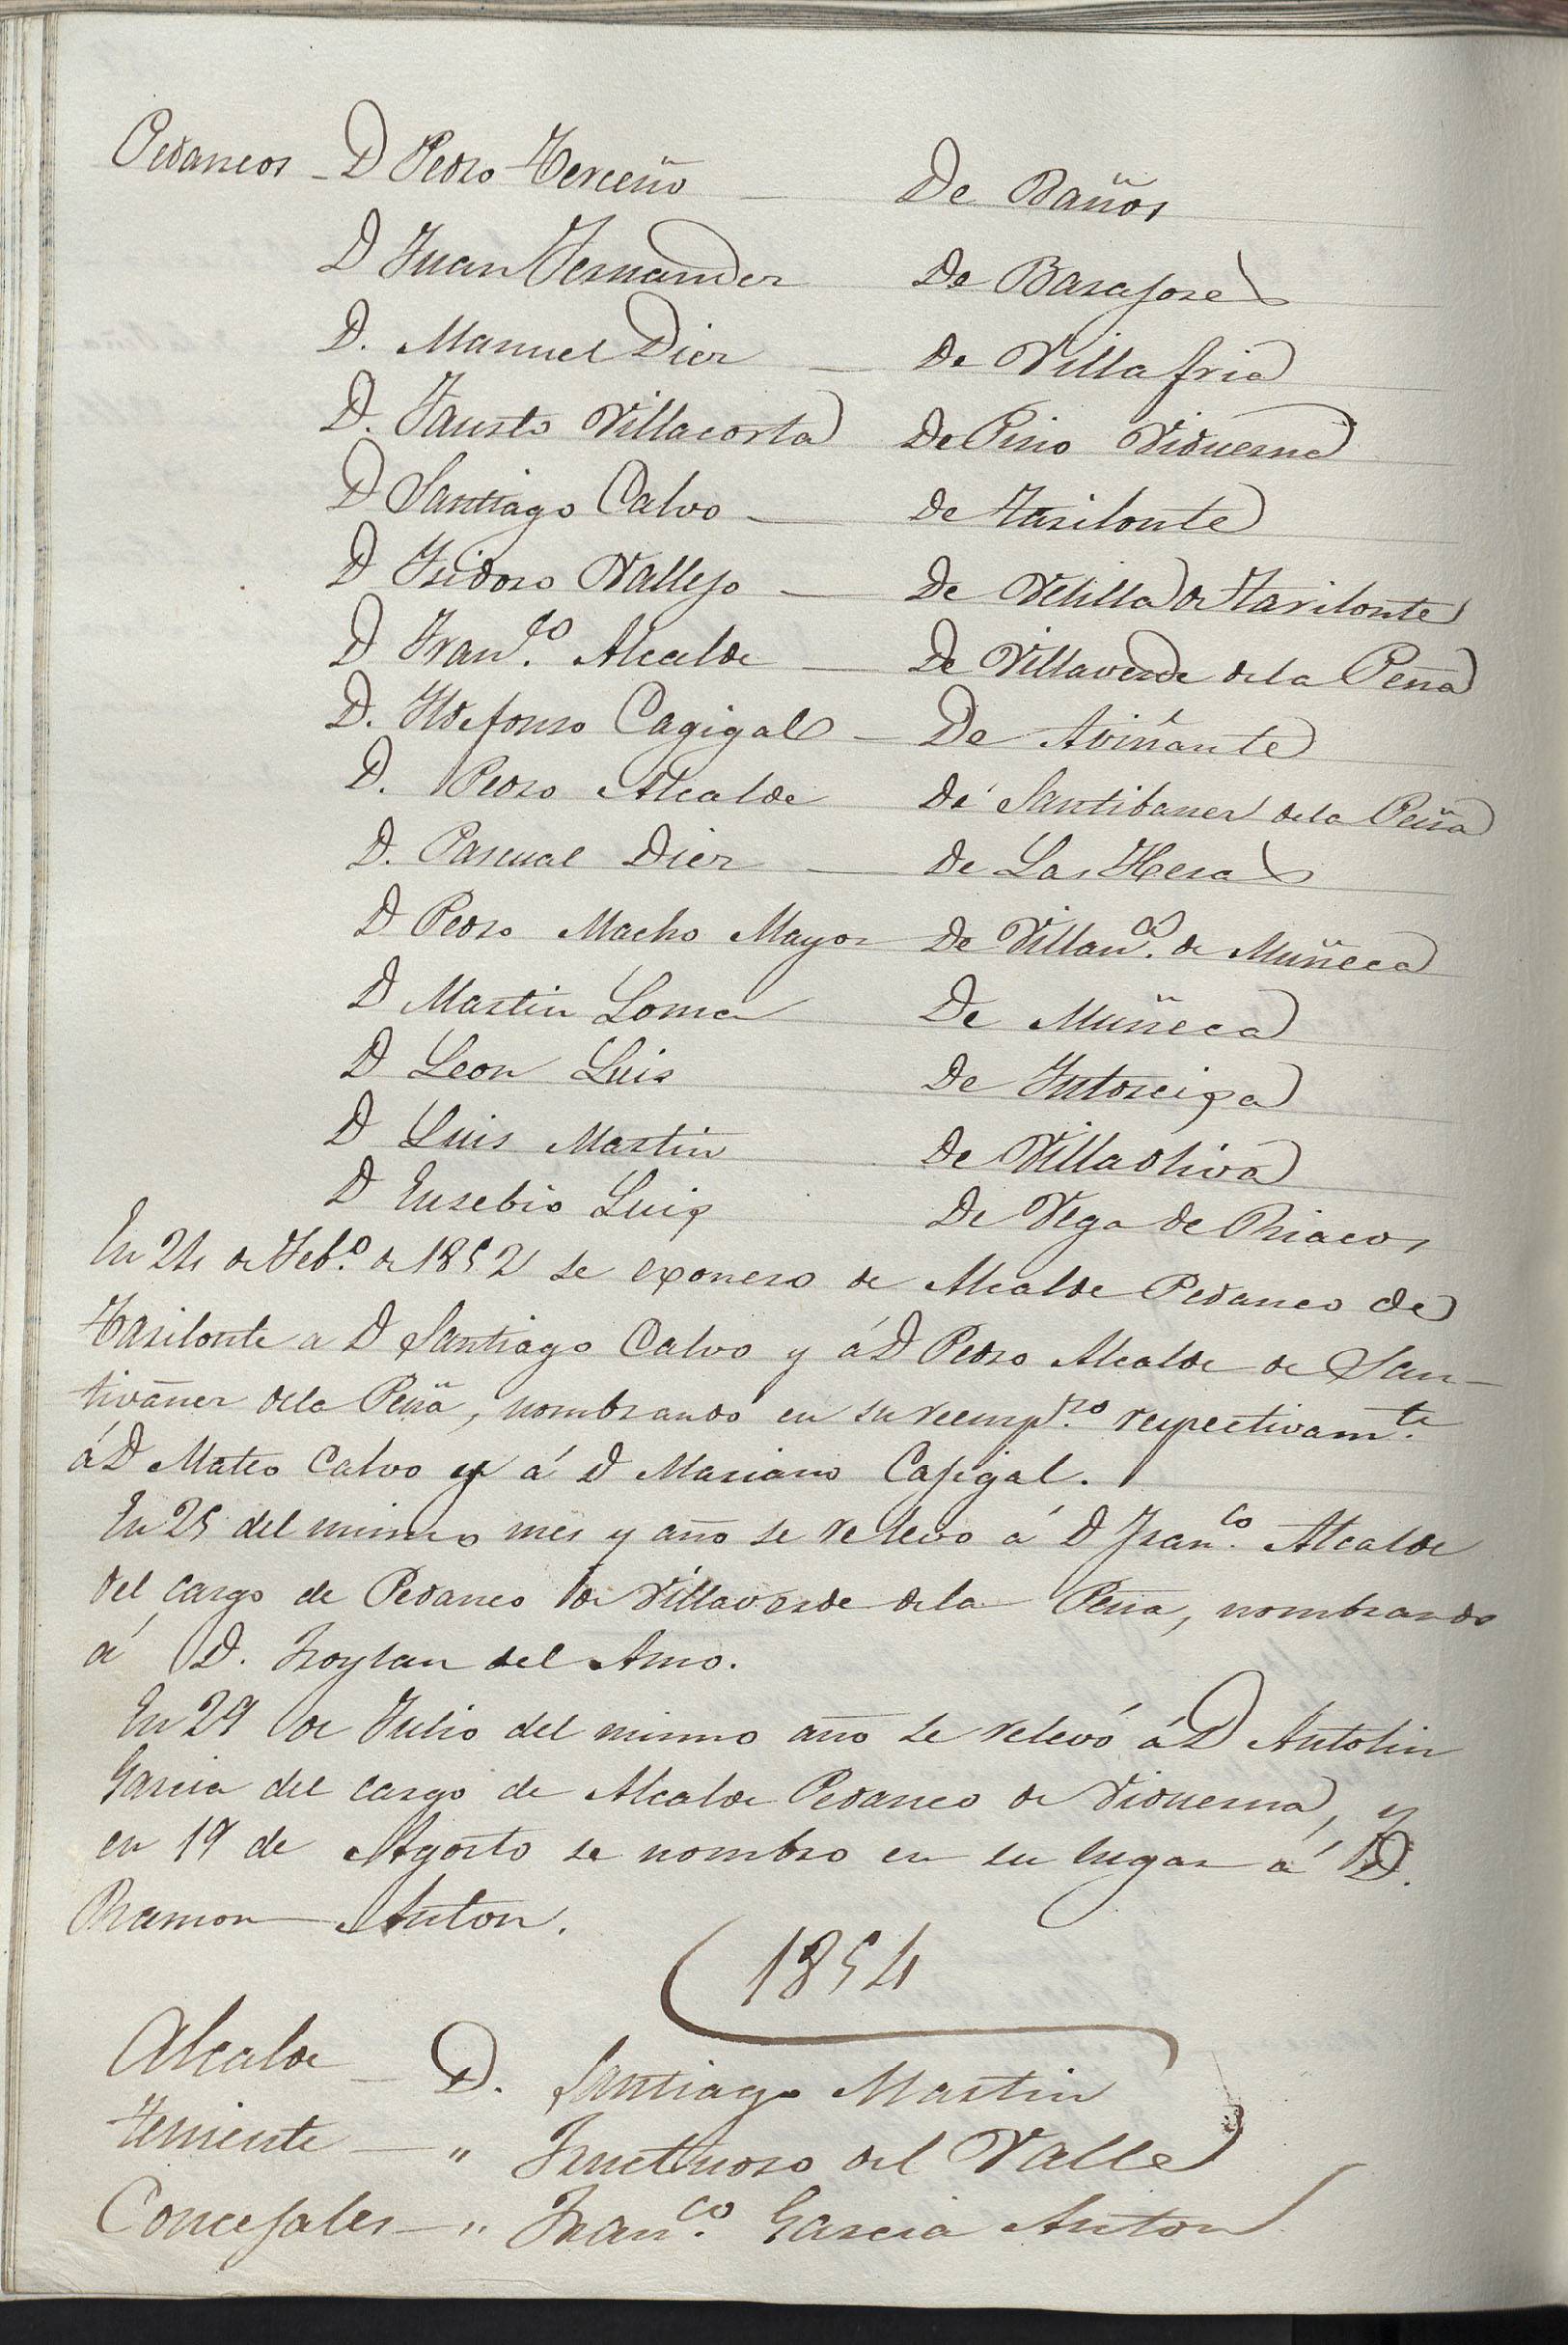 Pedaneos - D Pedro Terceño — De Baños
D Juan Fernandez De Barajores
D. Manuel Diez — De Villafria
D. Fausto Villacorta De Pino Viduerna
D Santiago Calvo — de Tarilonte
D Isidoro Vallejo — De Velilla de Tarilonte
D Fran.co Alcalde — De Villaverde de la Peña
D. Ildefonso Cagigal — De Aviñante
D. Pedro Alcalde De Santibanez de la Peña
D. Pascual Diez — De Las Heras
D Pedro Macho Mayor De Villan.a de Muñeca
D Martin Loma De Muñeca
D Leon Luis De Intorcisa
D Luis Martin De Villaoliva
D Eusebio Luis De Vega de Riacos
En 24 de Feb.o de 1852 se exonero de Alcalde Pedaneo de
Tarilonte a D Santiago Calvo y á D Pedro Alcalde de San-
tivañez de la Peña, nombrando en su reemp.zo respectivam.te
á D Mateo Calvo y á D Mariano Cajigal.
En 25 del mismo mes y año se relevo á D Fran.co Alcalde
del cargo de Pedaneo de Villaverde de la Peña, nombrando
á D. Froylan del Amo.
En 29 de Julio del mismo año se relevó á D Antolin
Garcia del cargo de Alcalde Pedaneo de Viduerna, y
en 19 de Agosto se nombro en su lugar á D.
Ramon Anton.
1854
Alcalde — D. Santiago Martin
Teniente — " Fructuoso del Valle
Concejales — " Fran.co Garcia Anton